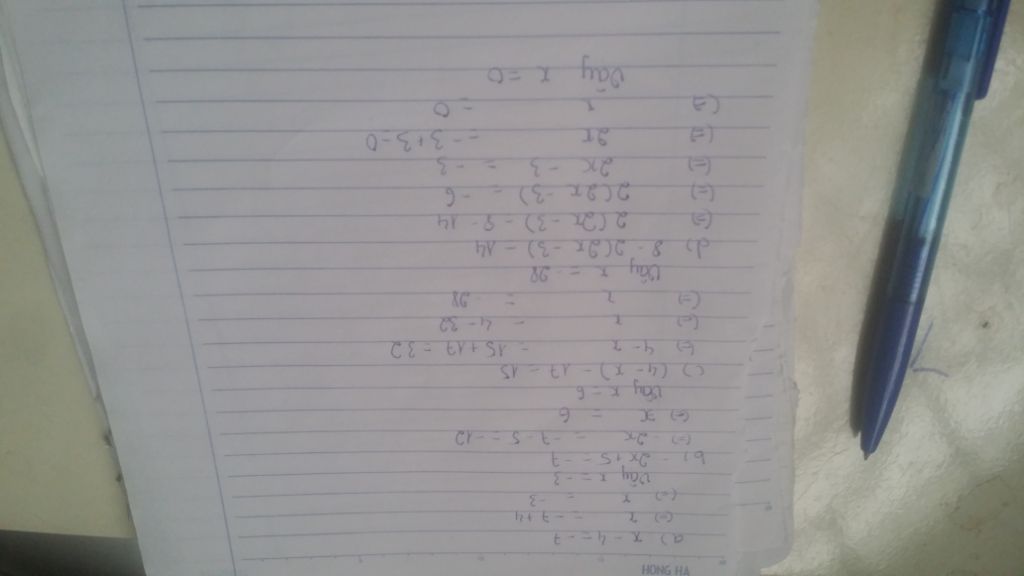 HONG HA
a) x - 4 = -7
(=) x = -7+4
(=) x = -3
Vậy x = -3
b) - 2x+5 = -7
(=) - 2x = -7-5 = -12
(=) x = 6
Vậy x = 6
c) (4 - x) - 17 = 15
(=) 4 - x = 15+17 = 32
(=) x = 4-32
(=) x = -28
Vậy x = -28
d) 8 - 2(2x -3) = 14
(=) 2(2x -3) = 8-14
(=) 2(2x -3) = -6
(=) 2x -3 = -3
(=) 2x = -3+3=0
(=) x = 0
Vậy x = 0